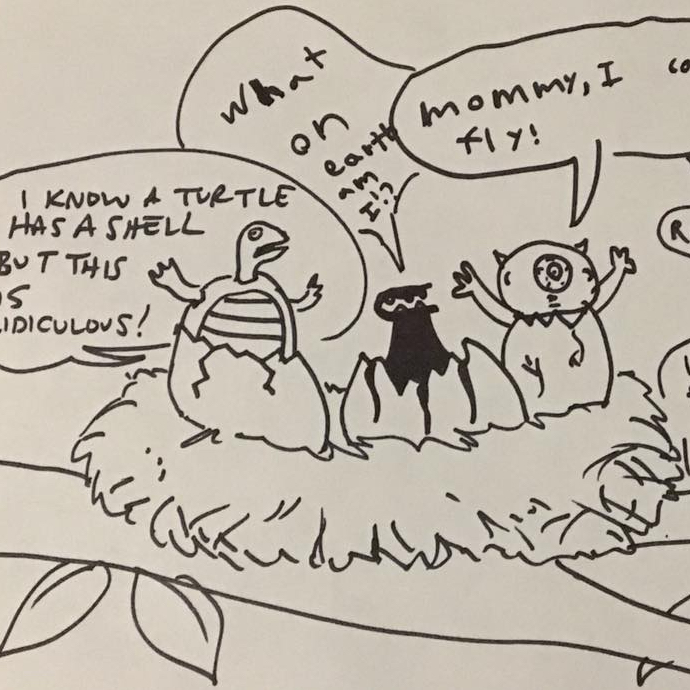 I KNOW A TURTLE
HAS A SHELL
BUT THIS
IS
RIDICULOUS!
What
on
earth
am
I?
mommy, I
fly!
R